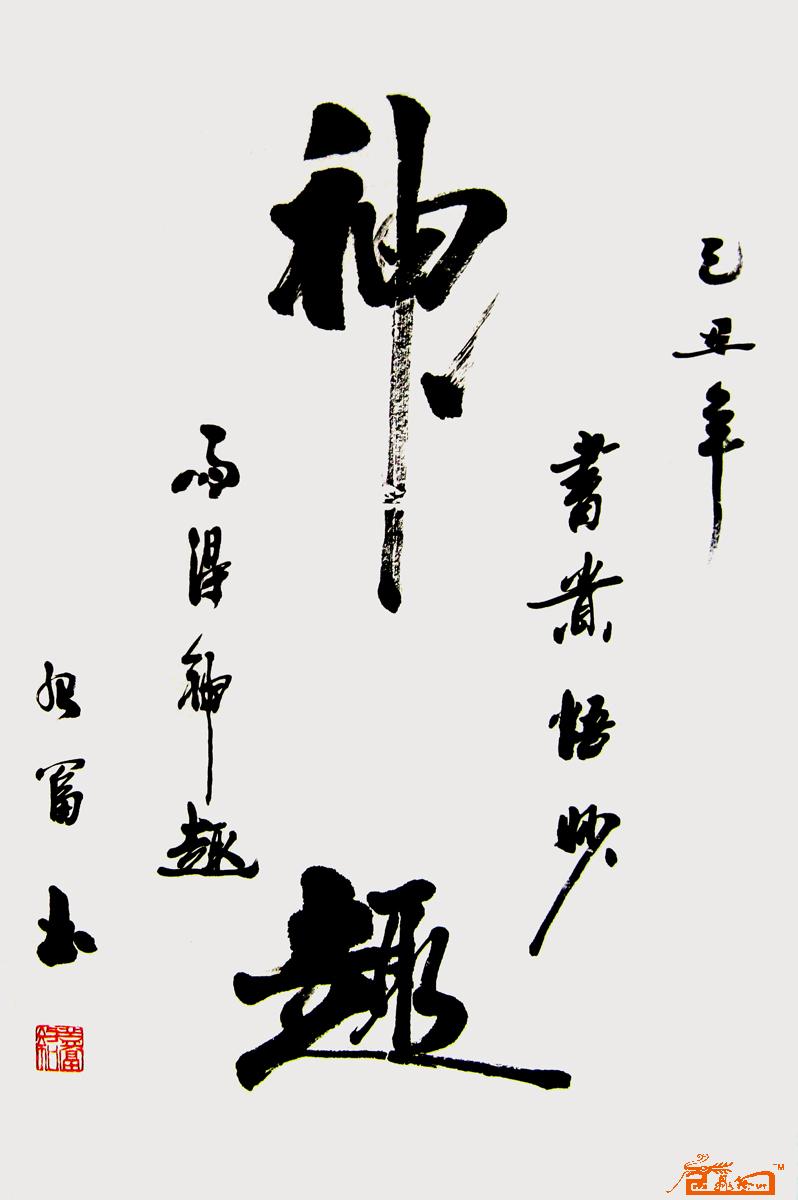 己丑年
神趣
書貴悟妙
而得神趣
富书